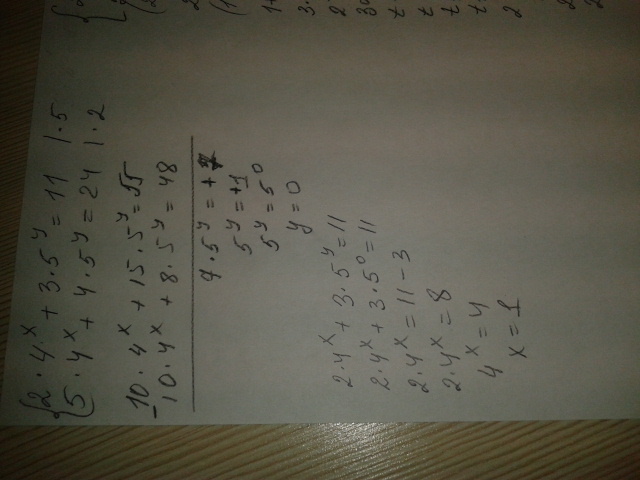 {2·4^x + 3·5^y = 11 |·5
{5·4^x + 4·5^y = 24 |·2
10·4^x + 15·5^y = 55
-
10·4^x + 8·5^y = 48
7·5^y = +7
5^y = +1
5^y = 5^0
y = 0
2·4^x + 3·5^y = 11
2·4^x + 3·5^0 = 11
2·4^x = 11 - 3
2·4^x = 8
4^x = 4
x = 1